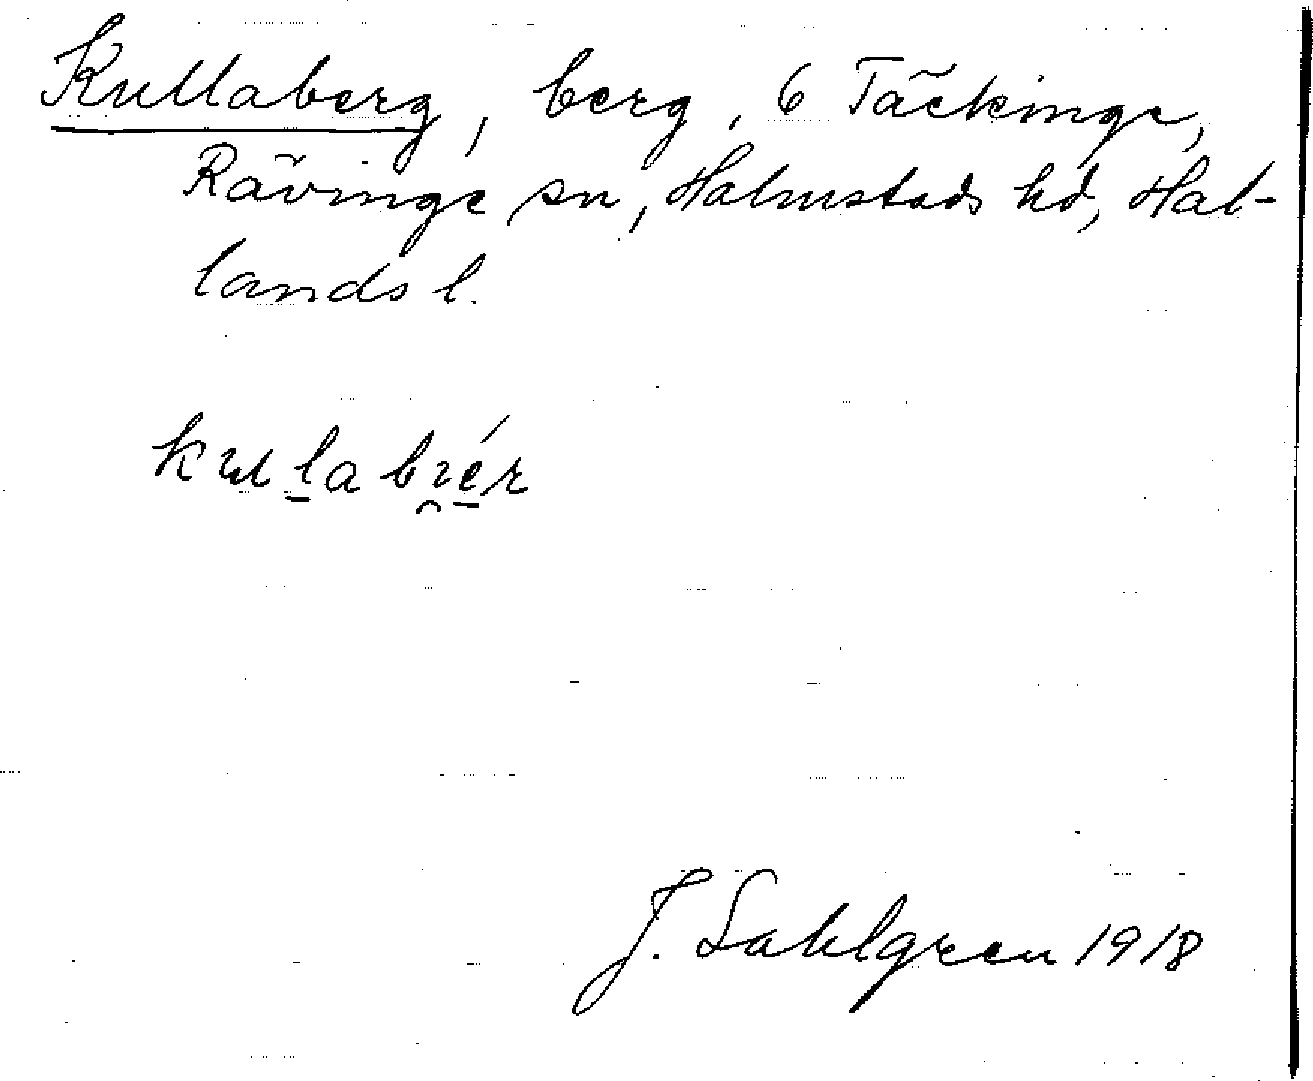 Kullaberg, berg, 6 Täckinge,
Rävinge sn, Halmstads hd, Hal-
lands l.
J. Sahlgren 1918